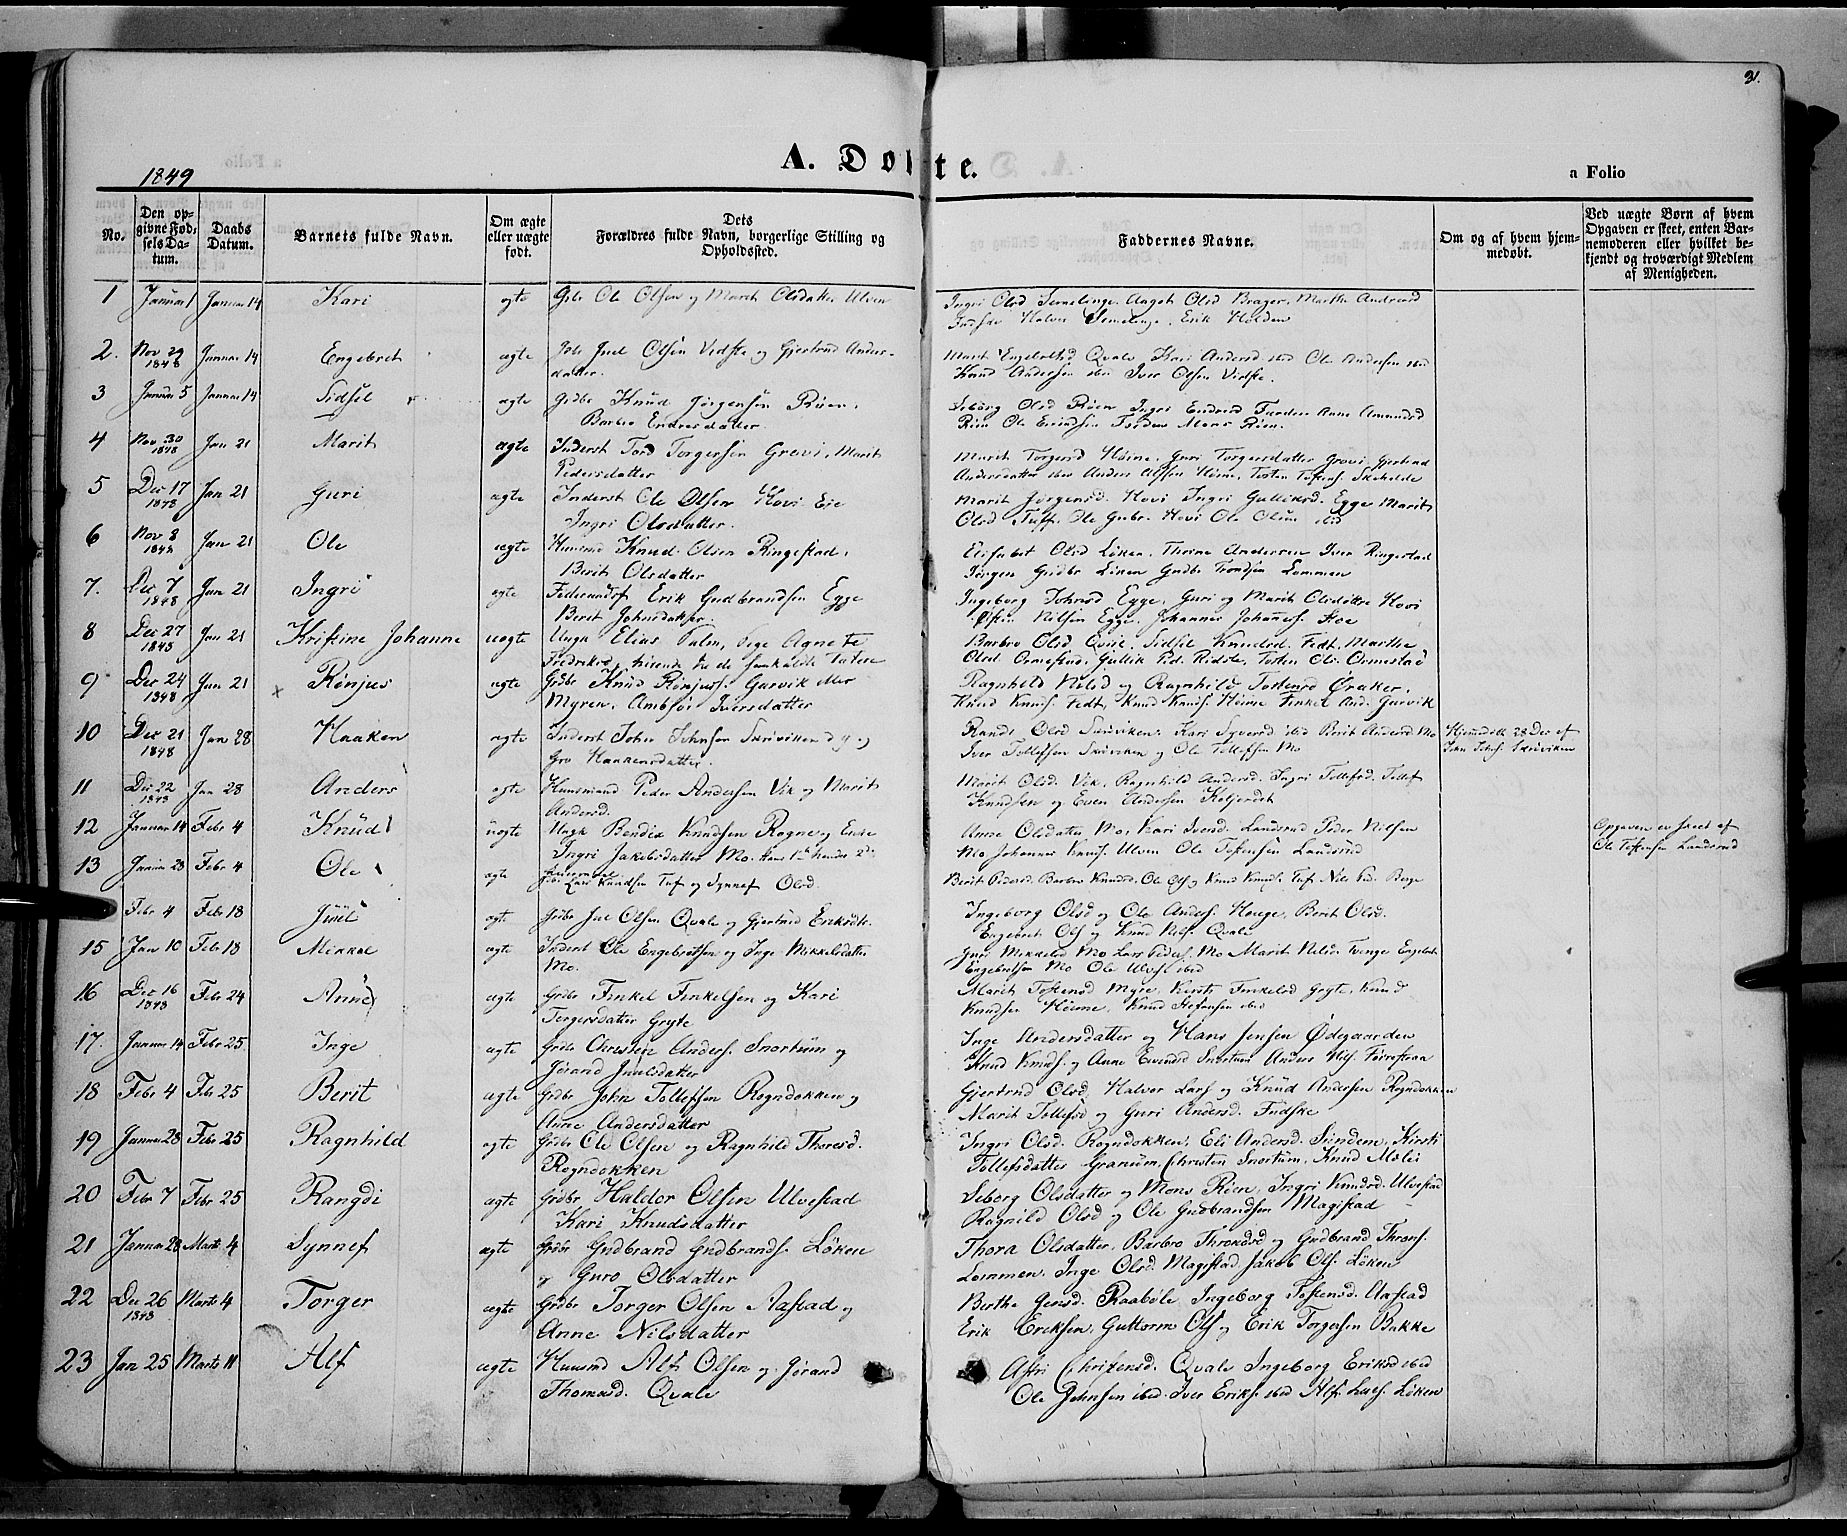 31.
A. Døbte.
1849
a Folio
No.
Den opgivne Fødsels Datum.
Daabs Datum.
Barnets fulde Navn.
Om ægte eller uægte født.
Dets Forældres fulde Navn, borgerlige Stilling og Opholdssted.
Faddernes Navne.
Om og af hvem hjemmedøbt.
Ved uægte Børn af hvem Opgaven er skeet, enten Barnemoderen eller hvilket bekjendt og troværdigt Medlem af Menigheden.
1 Januar 1 Januar 14 Kari ægte Gdbr Ole Olsen og Marit Olsdatter Ulven
Ingri Olsd Semelenge. Angot Olsd Brager, Marthe Andersd
Halvor Semelenge, Erik Holden
2. Nov 29 1848 Januar 14 Engebret ægte Juel Olsen Vidste og Gjertrud Anders-
datter.
Marit Engebretsd Qvale, Kari Andersd ibd Ole Andersen ibd
Knud Andersen ibd Iver Olsen Vidste.
3 Januar 5 Januar 14 Sidsel ægte Gdbr Knud Jørgensen Røen,
Barbro Endresdatter
Seborg Olsd Røen Ingri Endresd Anne Amundsd
Røen Ole Mons Røen.
4 Nov 30 1848 Jan 21 Marit ægte Inderst Tord Torgersen Grovi, Marit
Pedersdatter
Marit Torgersd Høine, Guri Torgersdatter Grovi, Gjertrud
Andersdatter ibd Anders Alfsen Høine, Tosten Tostens.
5 Dec 17 1848 Jan 21 Guri ægte Inderst Ole Olsen Hovi Eie
Ingri Olsdatter.
Marit Jørgensd. Hovi Ingri Gulliksd. Egge Marit
Olsd Tuff. Ole Gubr. Hovi Ole Olsen ibid
6 Nov 8 1848 Jan 21 Ole ægte Huusmd Knud Olsen Ringestad,
Berit Olsdatter
Elisabet Olsd Løken, Thrine Andersen Iver Ringestad
Jørgen Gudbr Løken Gudbr Trondsen Lommen
7. Dec 7 1848 Jan 21 Ingri ægte Føderaadsf Erik Gudbrandsen Egge
Berit Johnsdatter.
Ingeborg Johnsd Egge, Guri og Marit Olsdøttre Hovi
Østen Nilsen Egge, Johannes Johanness. Hoe
8 Dec 27 1848 Jan 21 Kristine Johanne uægte Ungk Elias Palm, Pige Agnete
Fredriksd, hørende til de saakaldte Tatere
Barbro Olsd Qvale, Sidsel Knudsd. Fedt, Marthe
Olsd Ormestad, Gullik Ped. Ridste, Tosten Ols. Ormestad
9 Dec 24 1848 Jan 21 Rønjus ægte Gdbr Knud Rønjuss. Garvik eller
Myren, Ambjør Iversdatter
Ragnhild Nilsd og Ragnhild Tostensd Øraker,
Knud Knuds. Fedt, Knud Knuds. Høine Finkel And. Garvik
10 Dec 21 1848 Jan 28 Haaken ægte Inderst John Johnsen Skrøviken og
Gro Haakensdatter.
Randi Olsd Skrøviken, Kari Syversd ibid Berit Andersd Mo
Iver Tollefsen Skrøviken og Ole Tollefsen Mo
Hjemdøbt 28 Dec af
John Johns. Skrøviken
11 Dec 22 1848 Jan 28 Anders ægte Huusmand Peder Andersen Vik og Marit
Andersd.
Marit Olsd. Vik, Ragnhild Andersd. Ingri Tollefsd. Tollef
Knudsen og Even Andersen
12 Januar 14 Febr 4 Knud uægte Ungk Bendix Knudsen Rogne og Enke
Ingri Jakobsdatter Mo. Hans 1ste hendes 2det
Anne Olsdatter Mo, Kari Iversd. Landsrud Peder Nilsen
Mo Johannes Knuds. Ulven Ole Tostensen Landsrud
Opgaven er skeet af
Ole Tostensen Landsrud
13 Januar 28 Febr 4 Ole ægte
Lars Knudsen Tuf og Synnef Olsd.
Berit Pedersd. Barbro Knudsd. Ole Ols og Knud Knuds. Tuf Nils Ped. Berge
Febr 4 Febr 18 Juul ægte Gdbr Juel Olsen Qvale og Gjertrud Eriksdtr.
Ingeborg Olsd og Ole Anders. Houge, Berit Olsd.
Engebret Ols og Knud Nils. Qvale
15 Jan 10 Febr 18 Mikkel ægte Inderst Ole Engebretsen og Inge Mikkelsdatter
Mo.
Mikkelsd Mo Lars Peders. Mo Marit Nilsd. Engebret
Engebretsen Mo Ole Ulves. ibid
16 Dec 16 1848 Febr 24 Anne ægte Gdbr Finkel Finkelsen og Kari
Torgersdatter Gryte
Marit Tostensd Myre, Kirsti Finkelsd Gryte, Knud
Knudsen Høine, Knud Stefansen ibid
17. Januar 14 Febr 25 Inge ægte Gdbr Christen Anders. Snortum og
Jørand Juulsdatter
Inge Andersdatter og Hans Jensen Ødegaarden
Knud Knuds. og Anne Evensd Snortum Anders Nils.
18 Febr 4 Febr 25 Berit ægte Gdbr John Tollefsen Rogndokken og
Anne Andersdatter
Gjertrud Olsd, Halvor Lars og Knud Andersen Rogndokken
Marit Tollefsd og Guri Andersd. Fudske
19 Januar 28 Febr 25 Ragnhild ægte Gdbr Ole Olsen og Ragnhild Thoresd.
Rogndokken
Ingri Olsd. Rogndokken, Eli Andersd. Sundem, Kirsti
Tollefsdatter Granum, Christen Snortum, Knud
20 Febr 7 Febr 25 Rangdi ægte Grdbr Haldor Olsen Ulvestad
Kari Knudsdatter
Seborg Olsdatter og Mons Røen, Ingri Knudsd. Ulvestad
Ragnild Olsd og Ole Gudbrandsen Magistad
21 Januar 28 Marts 4 Synnef ægte Grdbr Gudbrand Gudbrands. Løken
og Guro Olsdatter
Thora Olsdatter, Barbro Throndsd og Gudbrand Throns.
Lommen. Inge Olsd. Magistad Jakob Ols. Løken
22 Dec 26 1848 Marts 4 Torger ægte Grdbr Torger Olsen Aastad og
Anne Nilsdatter
Berthe Jensd. Raabøle Ingeborg Tostensd. Aastad
Erik Eriksen, Guttorm Ols og Erik Torgersen Bakke
23 Jan 25 Marts 11 Alf ægte Huusmd Alf Olsen og Jørand
Thomasd. Qvale
Astri Christensd. Qvale Ingeborg Eriksd ibid
Ole Johnsen ibid. Iver Eriks. ibid Alf Lars. Løken